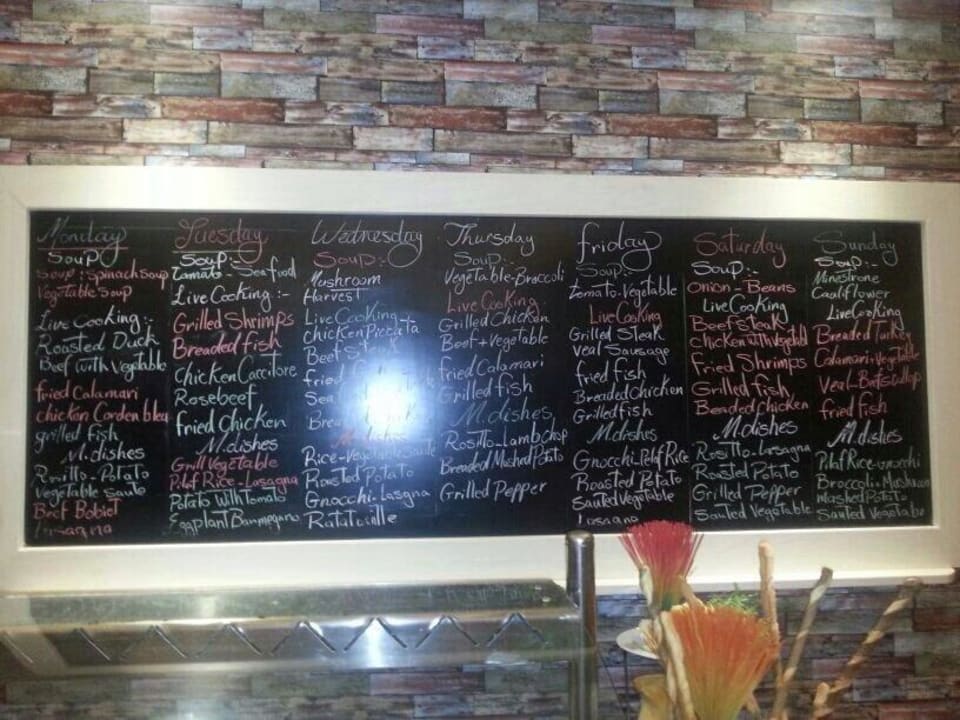 Monday
Soup
Soup : Spinach Soup
Vegetable Soup
Live Cooking :-
Roasted Duck
Beef with Vegetable
fried Calamari
chicken Corden bleu
grilled fish
M. dishes
Rosilto - Potato
Vegetable Sauto
Beef Bobiet
Lasagna
Tuesday
Soup :-
tomato - Seafood
Live Cooking :-
Grilled Shrimps
Breaded fish
Chicken Caccitore
Rosebeef
fried Chicken
M. dishes
Grill Vegetable
Pilaf Rice - Lasagna
Potato With Tomato
Eggplant Barmegano
Wednesday
Soup :-
Mushroom
Harvest
Live Cooking :-
chicken Piccata
Beef
fried
Sea
M. dishes
Rice - Vegetable Saute
Roasted Potato
Gnocchi - Lasgna
Ratatoville
Thursday
Soup :-
Vegetable - Braccoli
Live Cooking :-
Grilled Chicken
Beef + Vegetable
fried Calamari
Grilled fish
M. dishes
Rositto - Lamb Chop
Breaded Mashed Potato
Grilled Pepper
friday
Soup :-
tomato - Vegetable
Live Cooking
Grilled Steak
Veal Sausage
fried fish
Breaded Chicken
Grilled fish
M. dishes
Gnocchi - Pilaf Rice
Roasted Potato
Sauted Vegetable
Lasagna
Saturday
Soup :-
Onion - Beans
Live Cooking
Beef Steak
Chicken with Vegetabl
Fried Shrimps
Grilled fish
Beaded chicken
M. dishes
Rositto - Lasagna
Roasted Potato
Grilled Pepper
Sauted Vegetable
Sunday
Soup :-
Minestrone
Cauliflower
Live Cooking
Breaded Turkey
Calamari + Vegetable
Veal -
fried fish
M. dishes
Pilaf Rice - Gnocchi
Broccoli - Mushroom
mashed Potato
Sauted Vegetable